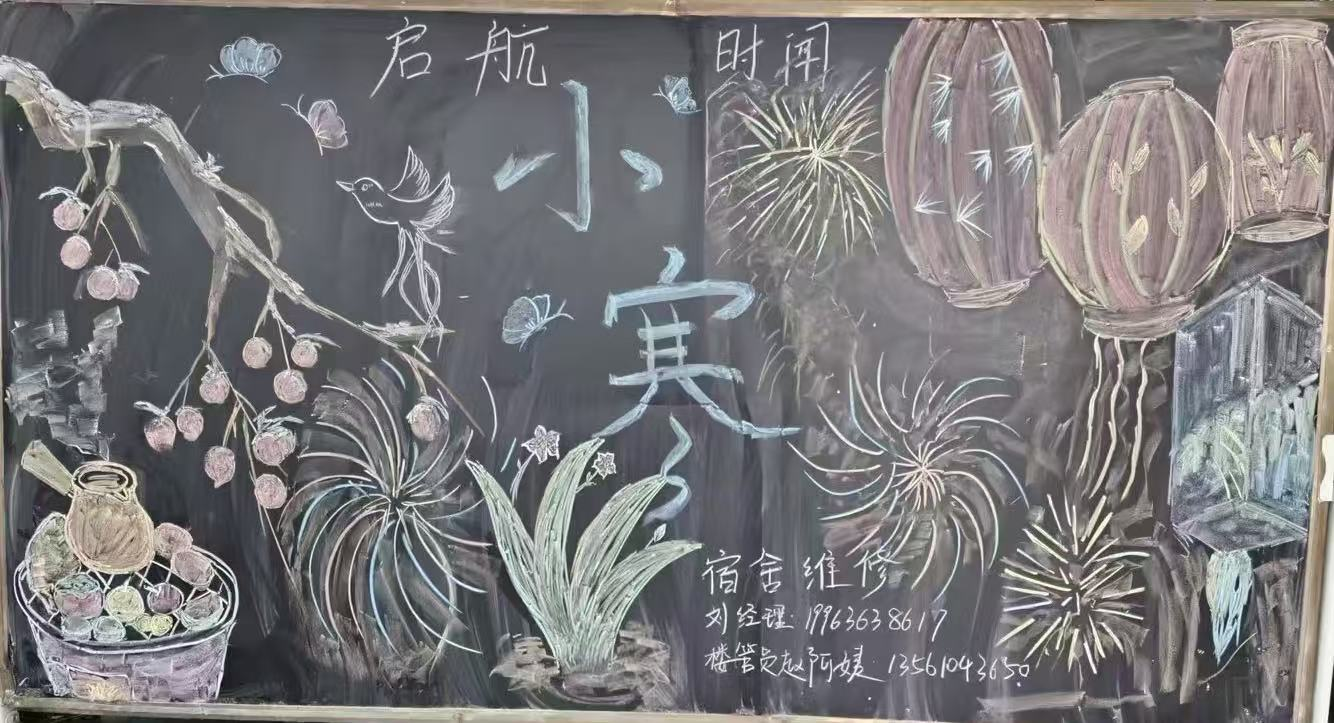 启航 时闻
小
寒
宿舍维修
刘经理:19963638617
楼管员赵阿姨:13561043650